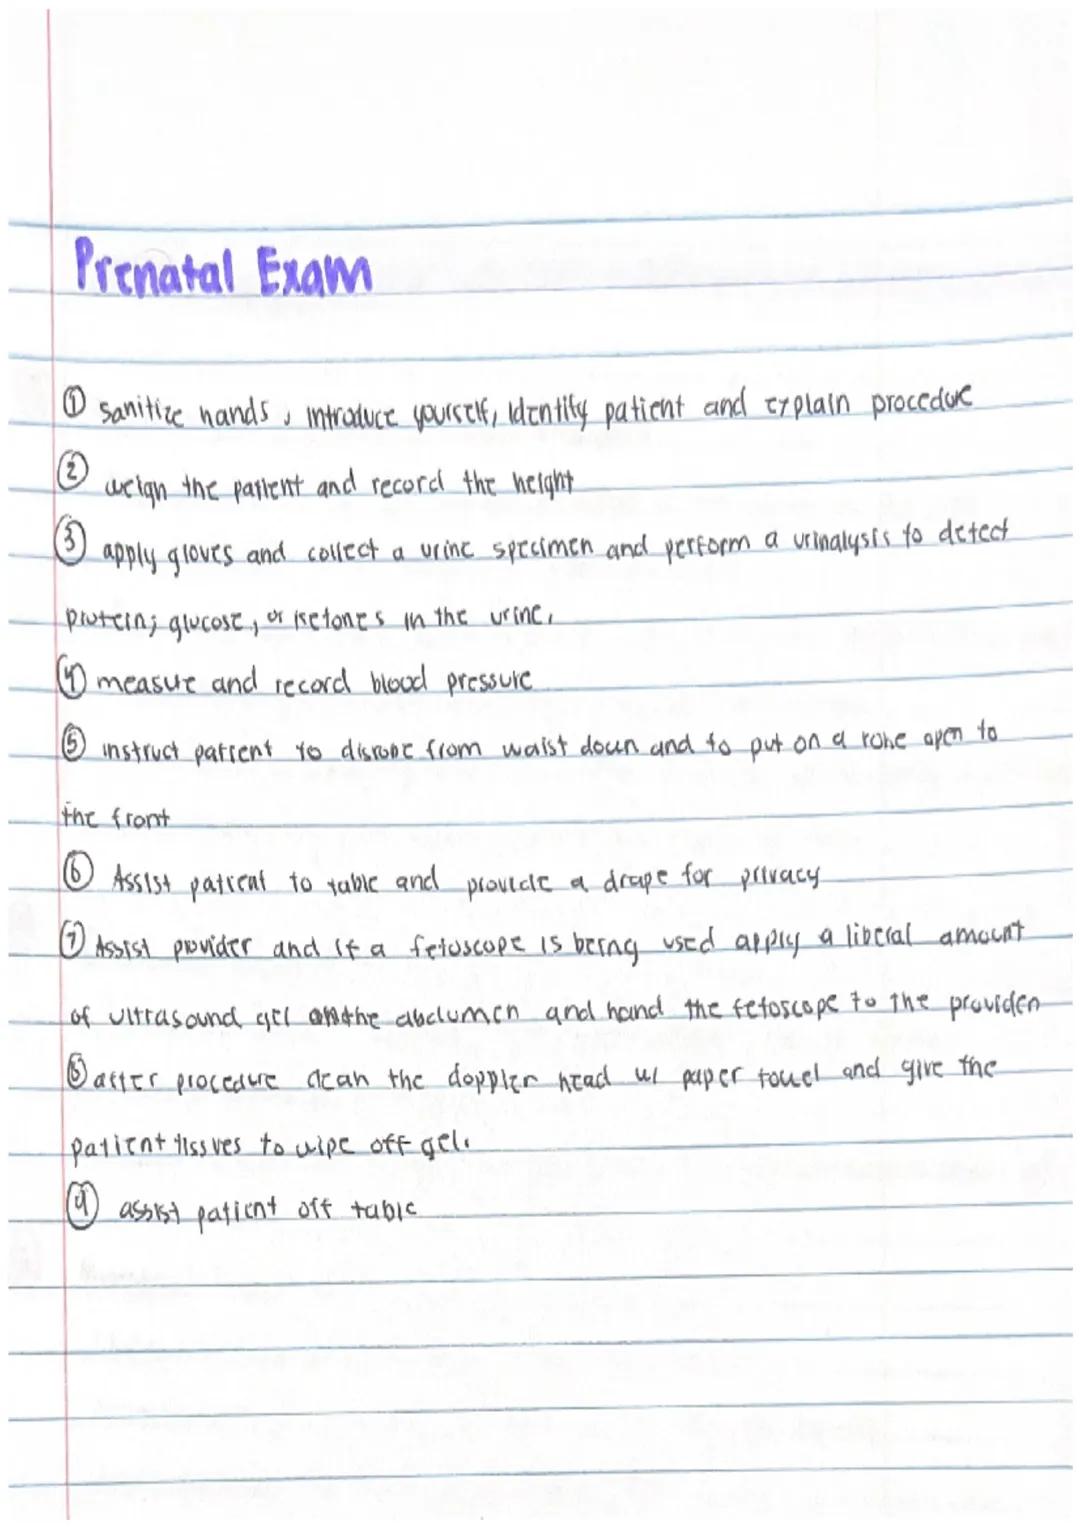 Prenatal Exam
① sanitize hands, introduce yourself, identify patient and explain procedure
② weigh the patient and record the height
③ apply gloves and collect a urine specimen and perform a urinalysis to detect
protein, glucose, or ketones in the urine.
④ measure and record blood pressure
⑤ instruct patient to disrobe from waist down and to put on a robe open to
the front
⑥ Assist patient to table and provide a drape for privacy
⑦ Assist provider and if a fetoscope is being used apply a liberal amount
of ultrasound gel on the abdumen and hand the fetoscope to the provider
⑧ after procedure clean the doppler head w/ paper towel and give the
patient tissues to wipe off gel.
⑨ assist patient off table